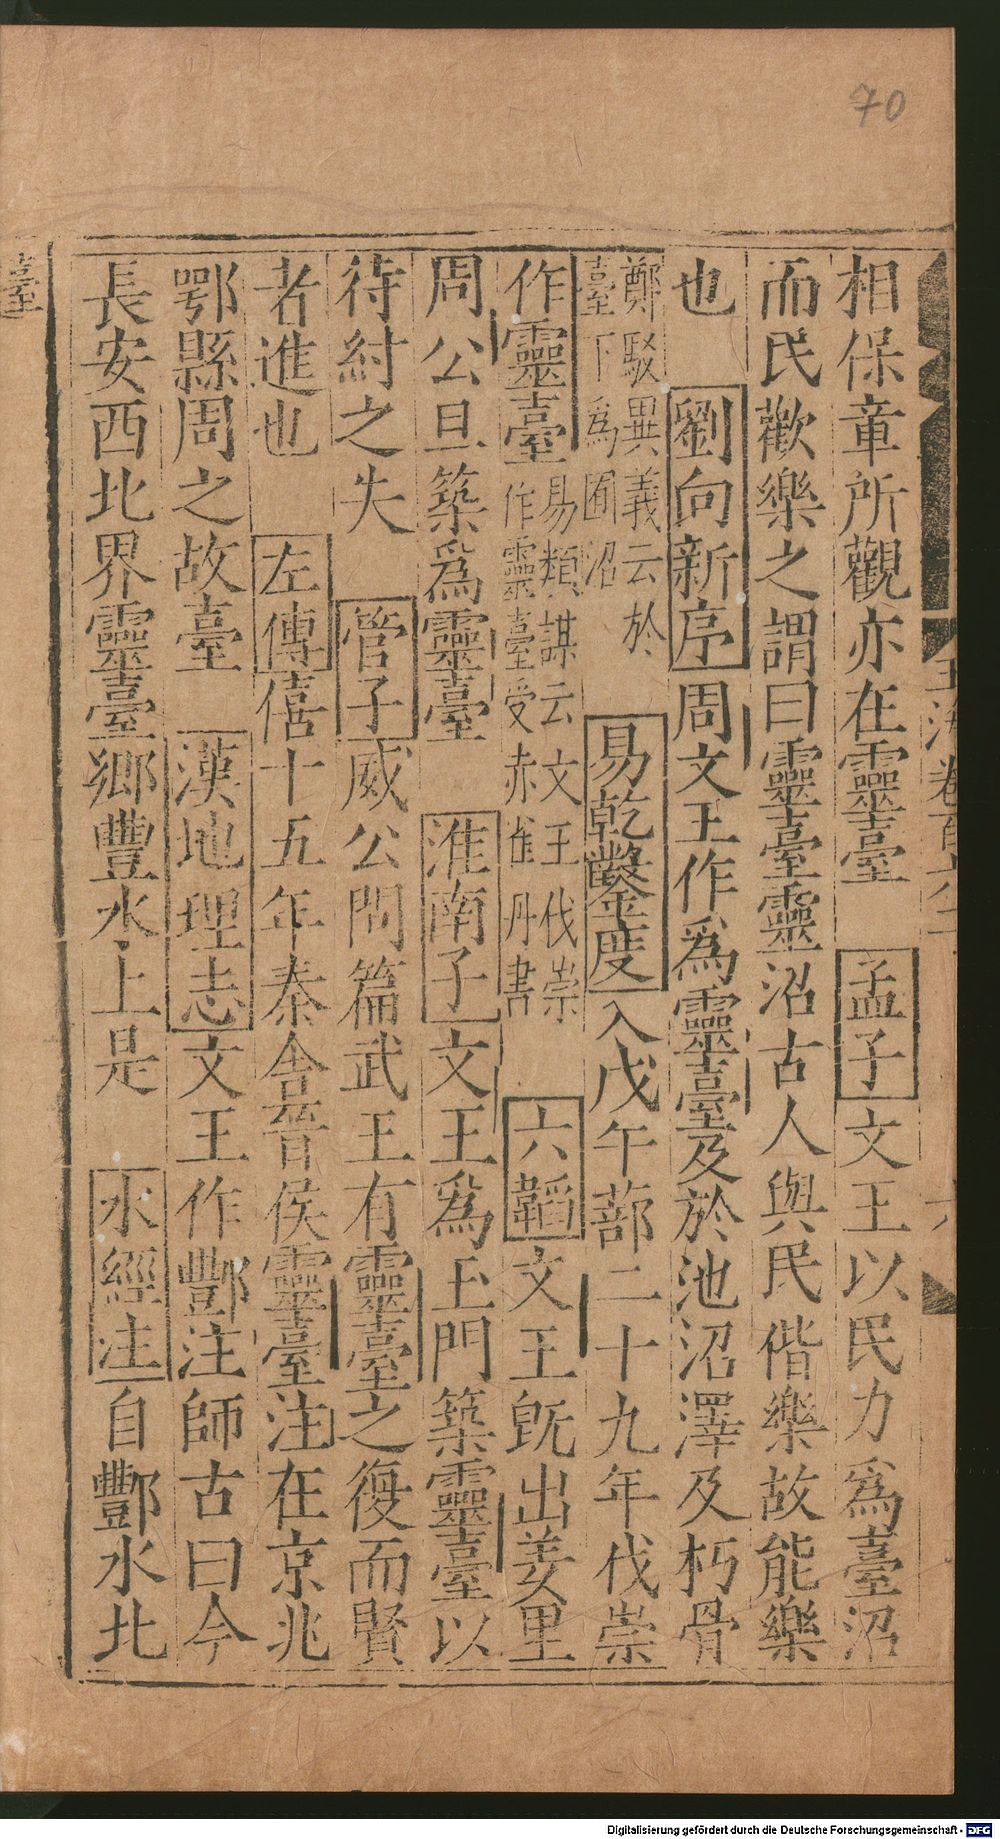 70
相保章所觀亦在靈臺 孟子文王以民力爲臺沼
而民歡樂之謂曰靈臺靈沼古人與民偕樂故能樂
也 劉向新序周文王作爲靈臺及於池沼澤及朽骨
鄭駁異義云於
臺下爲囿沼
易乾鑿度入戊午蔀二十九年伐崇
作靈臺
易類謀云文王伐崇
作靈臺受赤雀丹書
六韜文王旣出羑里
周公旦築爲靈臺 淮南子文王爲玉門築靈臺以
待紂之失 管子威公問篇武王有靈臺之復而賢
者進也 左傳僖十五年秦舍晉侯靈臺注在京兆
鄠縣周之故臺 漢地理志文王作酆注師古曰今
長安西北界靈臺鄉豐水上是 水經注自酆水北
臺
玉海卷百六十
六
Digitalisierung gefördert durch die Deutsche Forschungsgemeinschaft - DFG